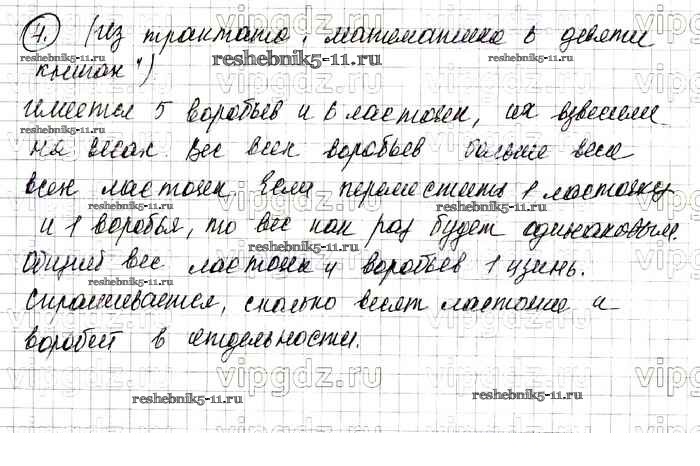 7. (Из трактата „Математика в девяти
книгах")
Имеется 5 воробьев и 6 ласточек, их взвесили
на весах. Вес всех воробьев больше веса
всех ласточек. Если переместить 1 ласточку
и 1 воробья, то вес как раз будет одинаковым.
Общий вес ласточек и воробьев 1 цзинь.
Спрашивается, сколько весят ласточка и
воробей в отдельности.
vipgdz.ru
reshebnik5-11.ru